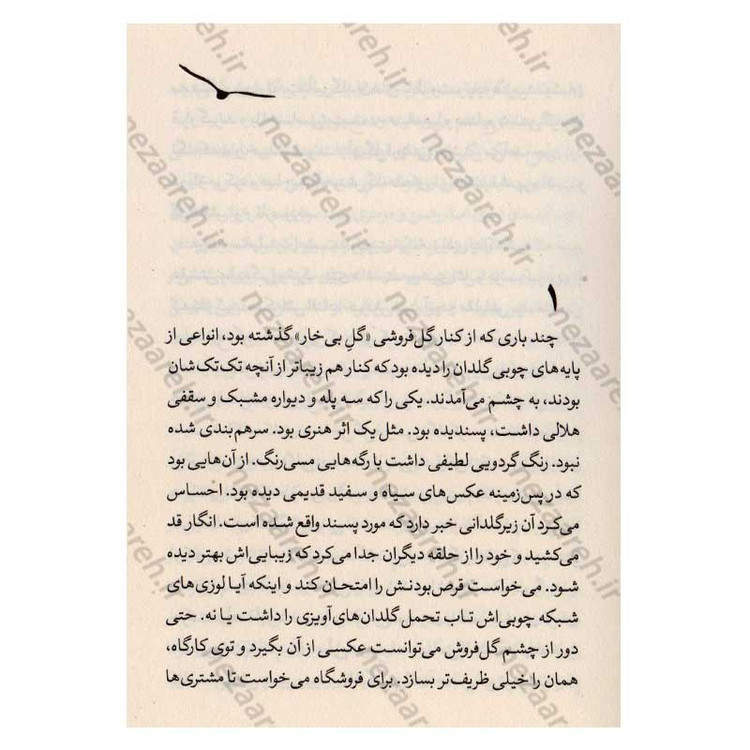 ۱
چند باری که از کنار گل‌فروشی «گلِ بی‌خار» گذشته بود، انواعی از
پایه‌های چوبی گلدان را دیده بود که کنار هم زیباتر از آنچه تک‌تک‌شان
بودند، به چشم می‌آمدند. یکی را که سه پله و دیواره مشبک و سقفی
هلالی داشت، پسندیده بود. مثل یک اثر هنری بود. سرهم‌بندی شده
نبود. رنگ گردویی لطیفی داشت با رگه‌هایی مسی‌رنگ. از آن‌هایی بود
که در پس‌زمینه عکس‌های سیاه و سفید قدیمی دیده بود. احساس
می‌کرد آن زیرگلدانی خبر دارد که مورد پسند واقع شده است. انگار قد
می‌کشید و خود را از حلقه دیگران جدا می‌کرد که زیبایی‌اش بهتر دیده
شود. می‌خواست قرص‌بودنش را امتحان کند و اینکه آیا لوزی‌های
شبکه چوبی‌اش تاب تحمل گلدان‌های آویزی را داشت یا نه. حتی
دور از چشم گل‌فروش می‌توانست عکسی از آن بگیرد و توی کارگاه،
همان را خیلی ظریف‌تر بسازد. برای فروشگاه می‌خواست تا مشتری‌ها
nezaareh.ir
nezaareh.ir
nezaareh.ir
nezaareh.ir
nezaareh.ir
nezaareh.ir
nezaareh.ir
nezaareh.ir